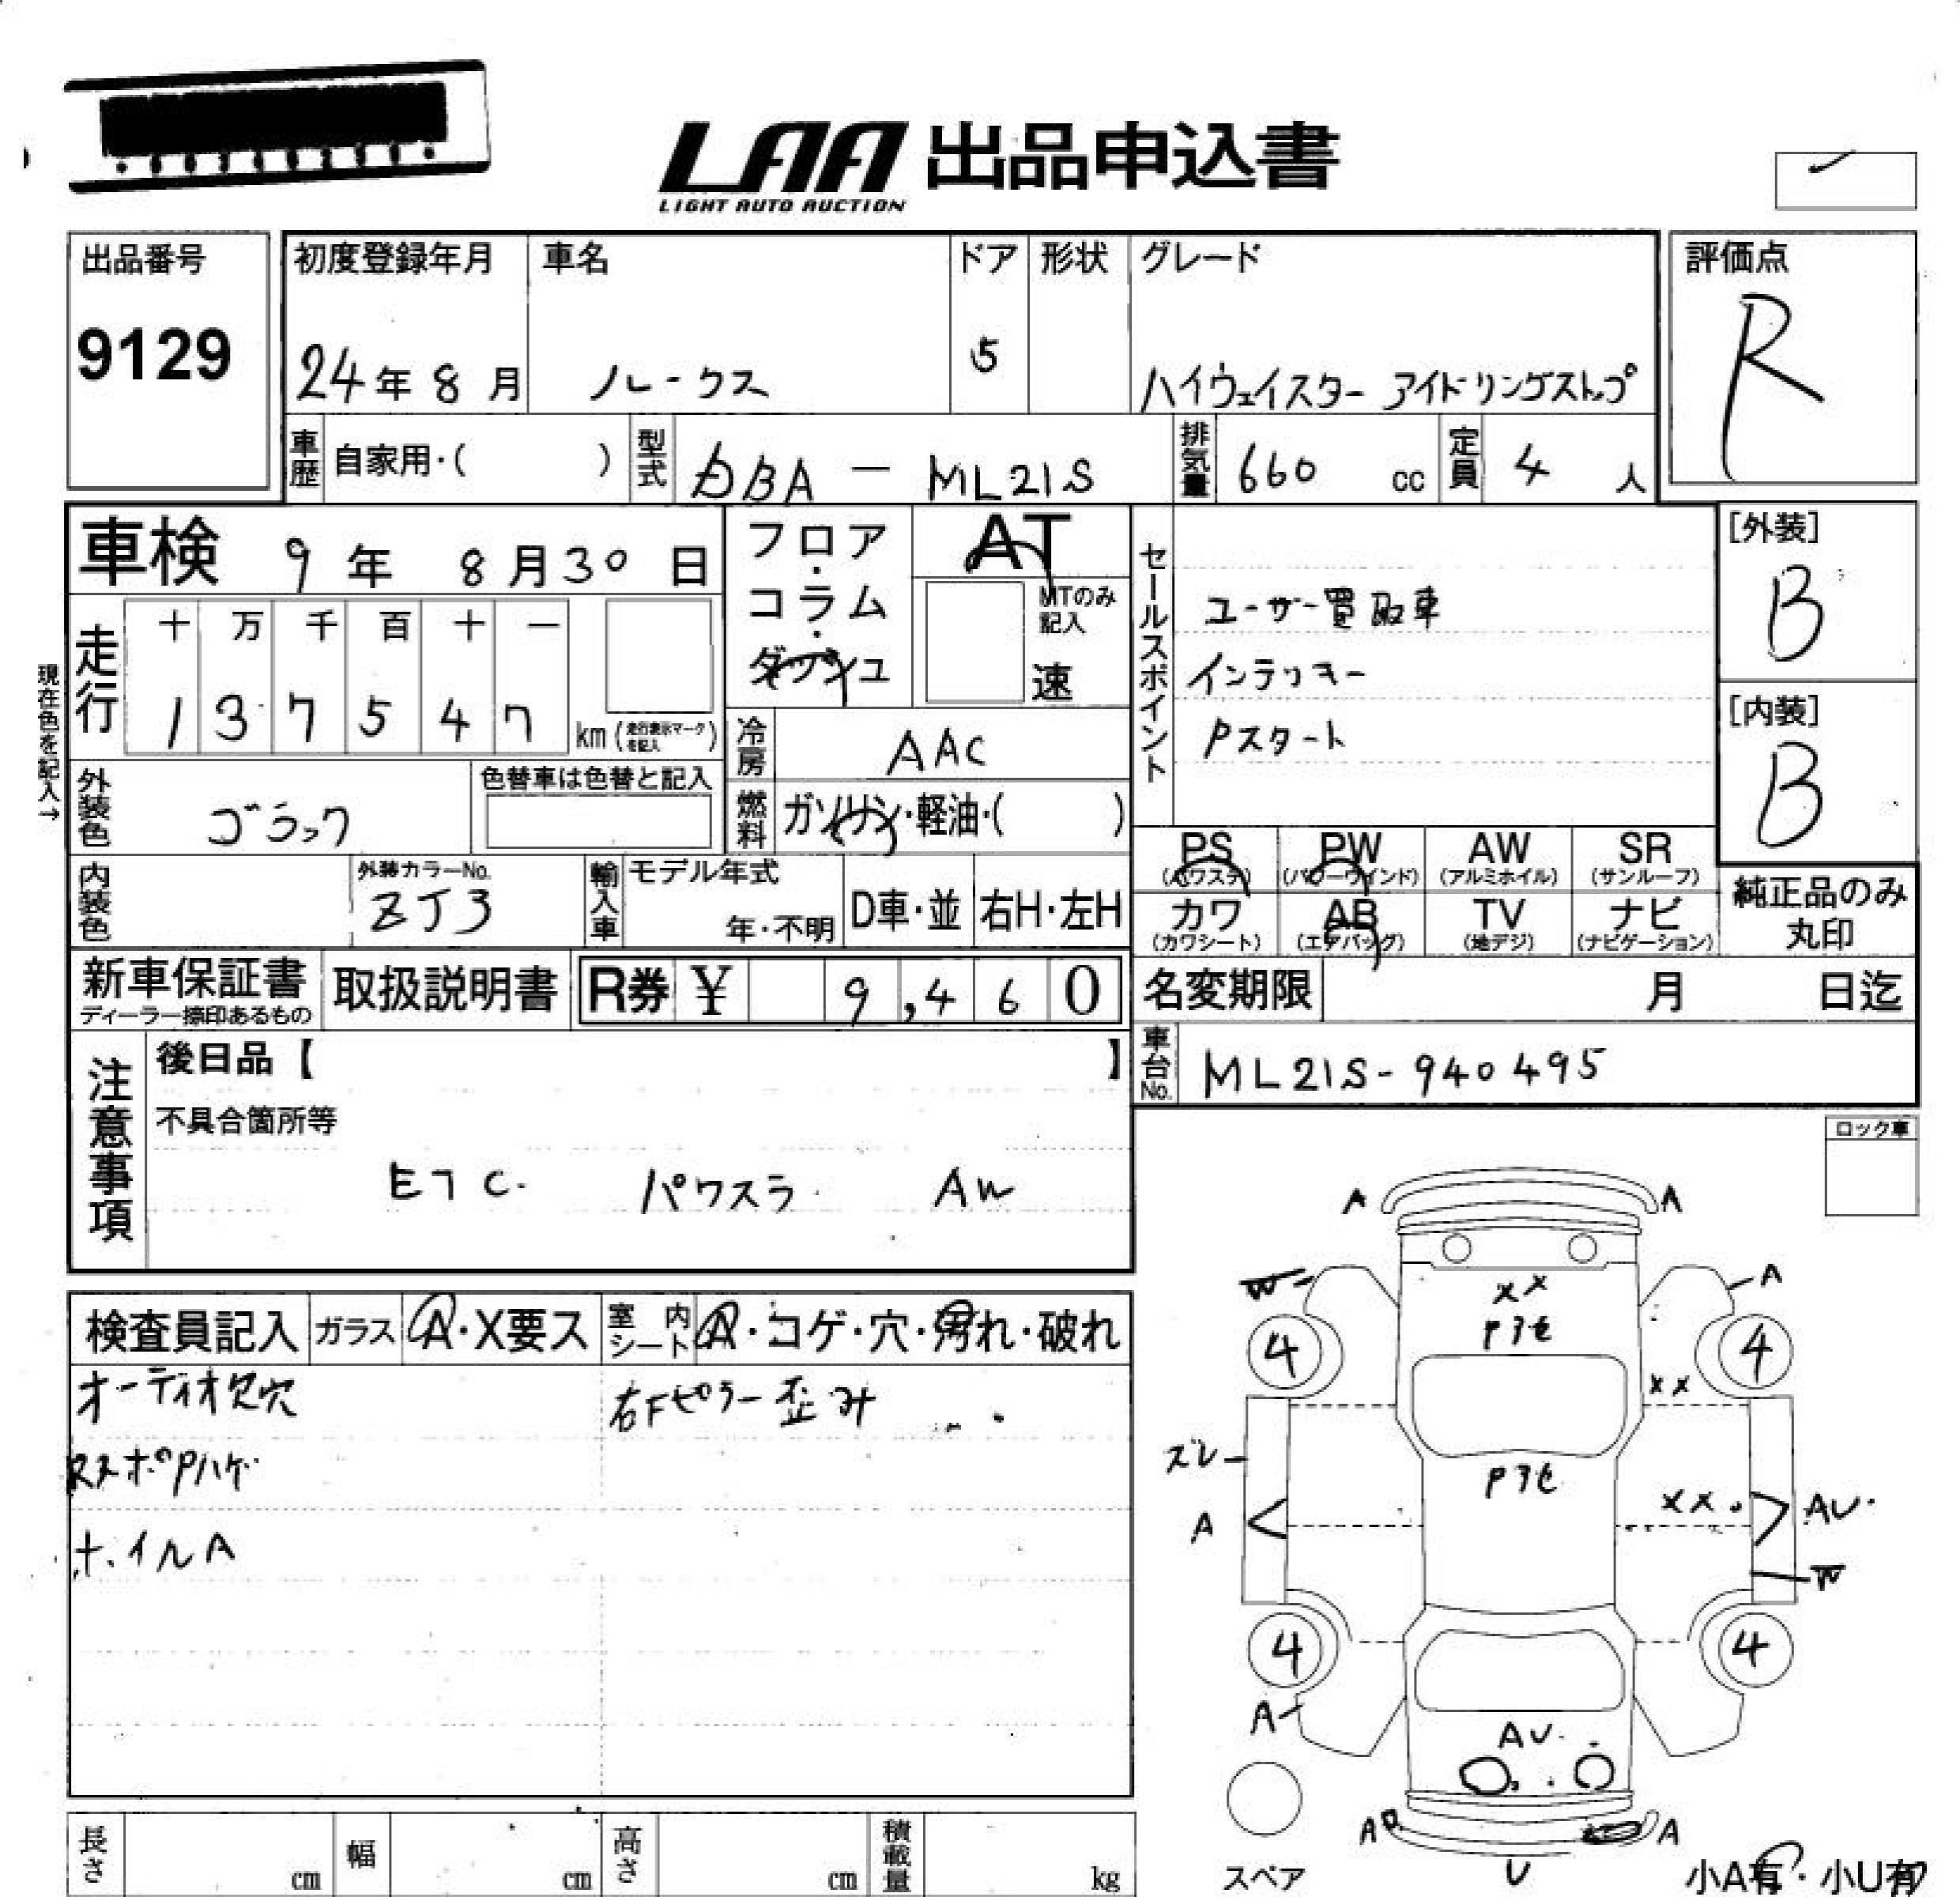 LAA 出品申込書
LIGHT AUTO AUCTION
出品番号 9129
初度登録年月 24年 8月
車名 ルークス
ドア 5
形状
グレード ハイウェイスター アイドリングストップ
評価点 R
車歴 自家用・( )
型式 DBA - ML21S
排気量 660 cc
定員 4 人
車検 9年 8月30日
フロア・コラム・ダッシュ
AT
MTのみ記入
速
セールスポイント
ユーザー買取車
インテリキー
Pスタート
[外装] B
[内装] B
現在色を記入→
走行 十万千百十一
1 3 7 5 4 7 km (走行表示マークを記入)
冷房 AAC
外装色
色替車は色替と記入
燃料 ガソリン・軽油・( )
PS (パワステ)
PW (パワーウインド)
AW (アルミホイル)
SR (サンルーフ)
カワ (カワシート)
AB (エアバッグ)
TV (地デジ)
ナビ (ナビゲーション)
純正品のみ丸印
内装色
外装カラーNo. ZJ3
輸入車
モデル年式 年・不明
D車・並
右H・左H
新車保証書 ディーラー捺印あるもの
取扱説明書
R券 ¥ 9,460
名変期限 月 日迄
車台No. ML21S-940495
注意事項
後日品【 】
不具合箇所等
ETC. パワスラ AW
ロック車
検査員記入
ガラス A・X要ス
室内シート A・コゲ・穴・汚れ・破れ
オーディオ欠穴 右Fピラー歪み
ホイルA
A A
W A
XX
Pアセ
4 4
XX
ズレ
Pアセ
A XX AU
W
4 4
A
AU
A A
U
スペア
小A有・小U有
長さ cm
幅 cm
高さ cm
積載量 kg